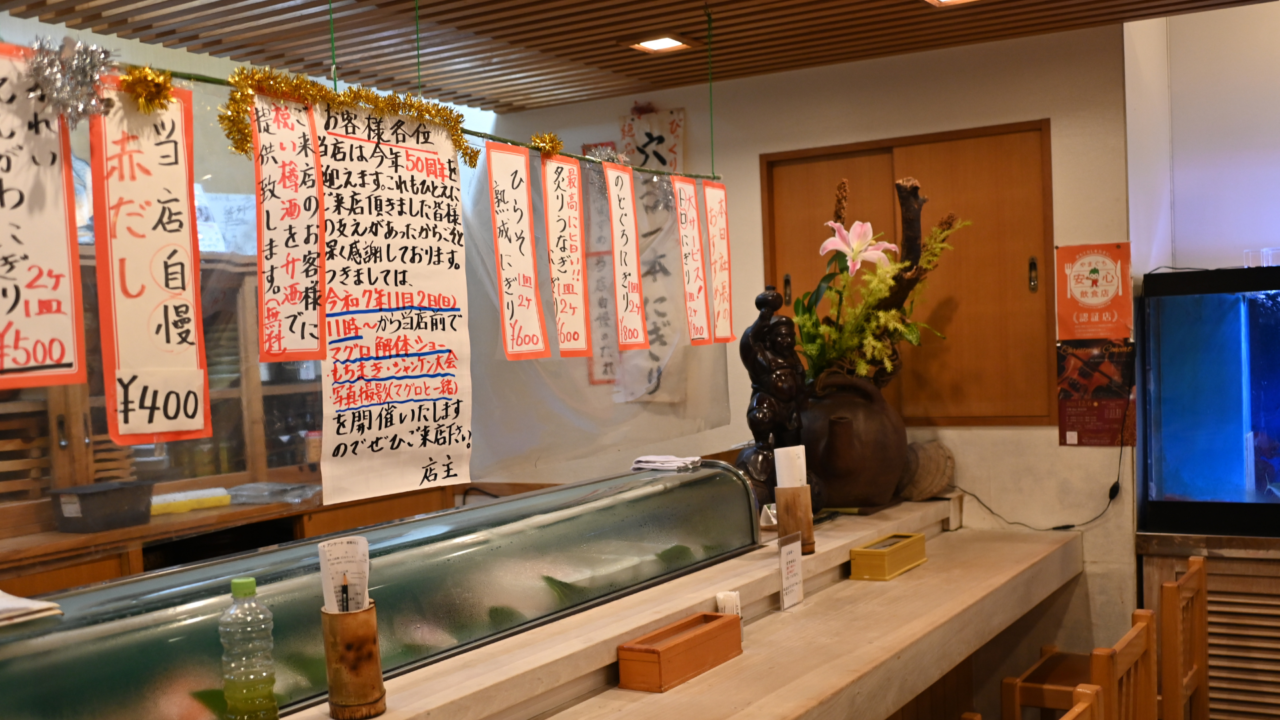 当店自慢
赤だし
¥400
2ケ
1皿
¥500
ご来店のお客様に
祝い樽酒をサ酒で
提供致します。(無料)
お客様各位
当店は今年50周年を
迎えます。これもひとえに
ご来店頂きました皆様
の支えがあったからこそと
深く感謝しております。
つきましては、
令和7年11月2日(日)
11時〜から当店前で
マグロ解体ショー
もちまき・ジャンケン大会
写真撮影(マグロと一緒)
を開催いたします
のでぜひご来店下さい
店主
ひらそ
熟成にぎり
1皿
2ケ
¥600
最高にヒヨリ!!
炙りうなぎ
1皿
2ケ
¥600
のどぐろにぎり
1皿
2ケ
¥800
大サービス!
トロにぎり
穴子一本にぎり
安心
飲食店
(認証店)